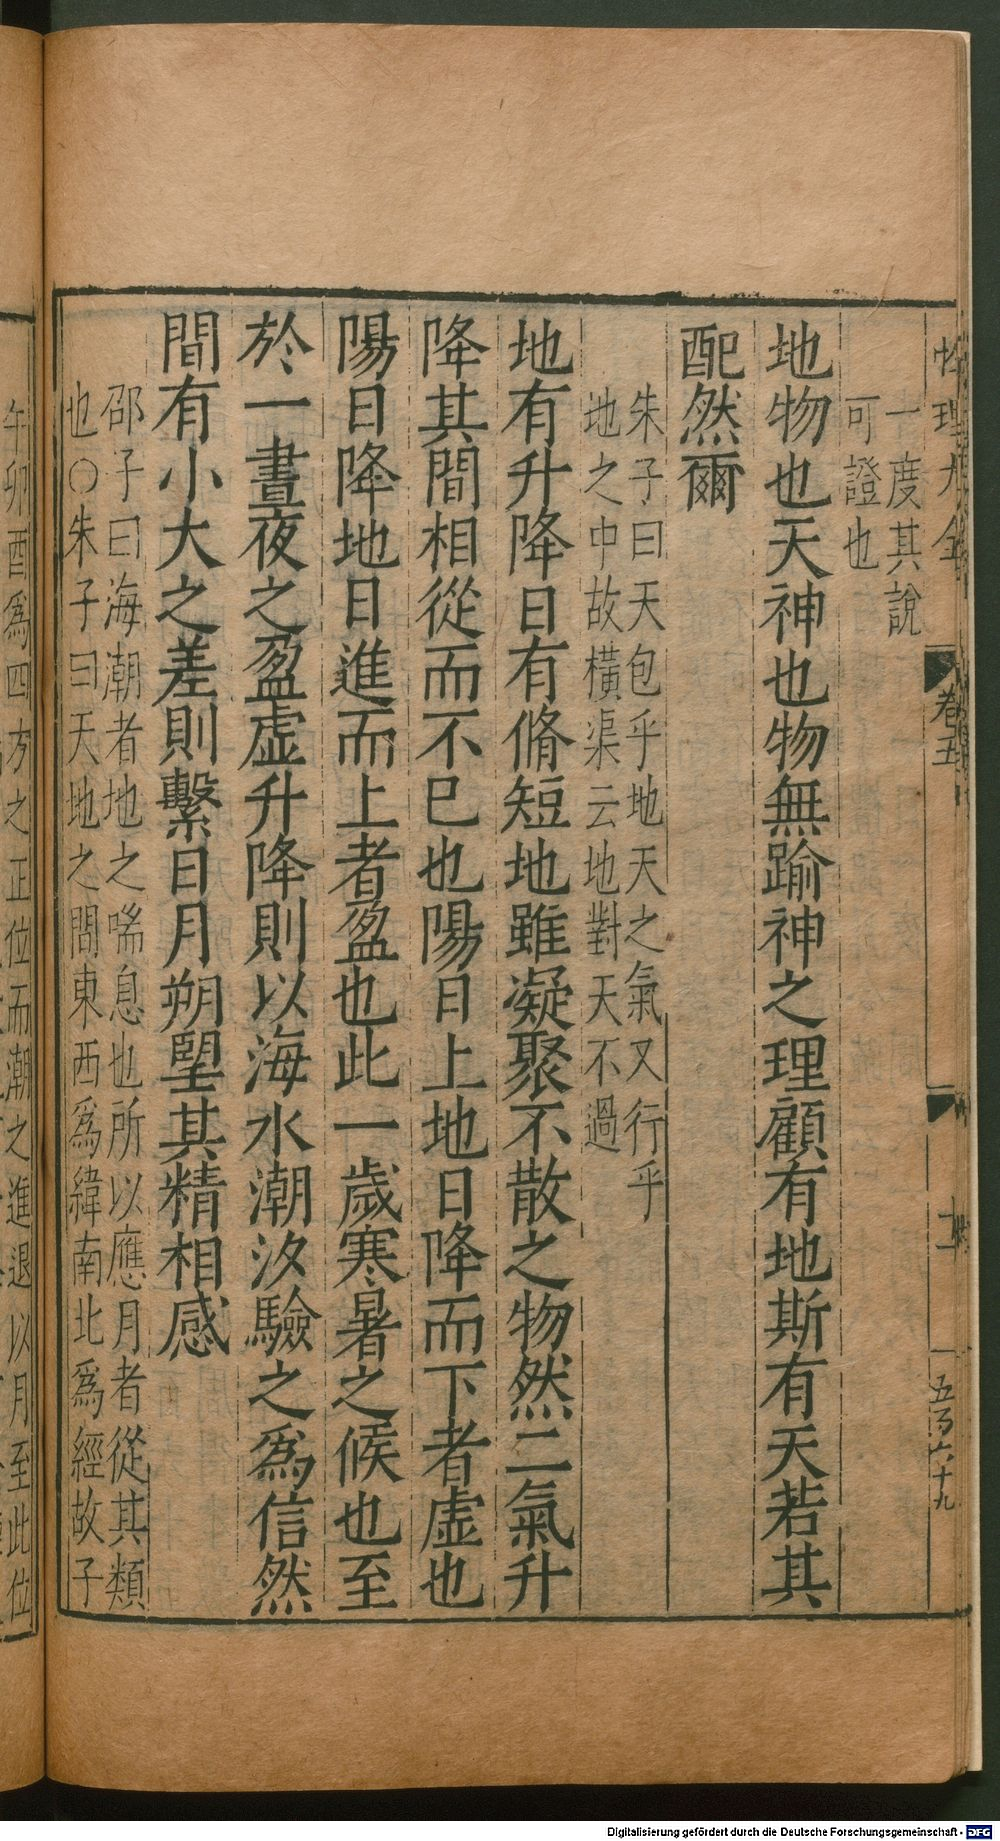 性理大全
卷五
五百六十九
一度其說
可證也
地物也天神也物無踰神之理顧有地斯有天若其
配然爾
朱子曰天包乎地天之氣又行乎
地之中故橫渠云地對天不過
地有升降日有脩短地雖凝聚不散之物然二氣升
降其間相從而不已也陽日上地日降而下者虛也
陽日降地日進而上者盈也此一歲寒暑之候也至
於一晝夜之盈虛升降則以海水潮汐驗之為信然
間有小大之差則繫日月朔望其精相感
邵子曰海潮者地之喘息也所以應月者從其類
也○朱子曰天地之間東西為緯南北為經故子
午卯酉為四方之正位而潮之進退以月至此位
Digitalisierung gefördert durch die Deutsche Forschungsgemeinschaft - DFG